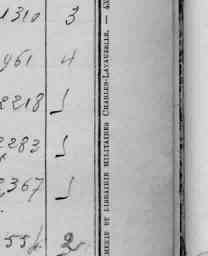 1310 3
961 4
2218
2283
2367
55 2
MERIE ET LIBRAIRIE MILITAIRES CHARLES-LAVAUZELLE. —